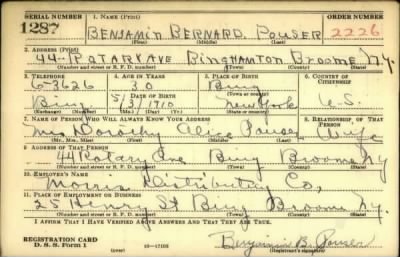 SERIAL NUMBER 1. NAME (Print) ORDER NUMBER
1287 BENJAMIN BERNARD POUSER 2226
(First) (Middle) (Last)
2. ADDRESS (Print)
44 ROTARY AVE BINGHAMTON BROOME N.Y.
(Number and street or R. F. D. number) (Town) (County) (State)
3. TELEPHONE 4. AGE IN YEARS 5. PLACE OF BIRTH 6. COUNTRY OF CITIZENSHIP
6-3626 30 Bing
DATE OF BIRTH (Town or county)
Bing 5/3/1910 New York U.S.
(Exchange) (Number) (Mo.) (Day) (Yr.) (State or country)
7. NAME OF PERSON WHO WILL ALWAYS KNOW YOUR ADDRESS 8. RELATIONSHIP OF THAT PERSON
Mrs Dorothy Alice Pouser Wife
(Mr., Mrs., Miss) (First) (Middle) (Last)
9. ADDRESS OF THAT PERSON
44 Rotary Ave Bing Broome Ny
(Number and street or R. F. D. number) (Town) (County) (State)
10. EMPLOYER'S NAME
Morris Distributing Co,
11. PLACE OF EMPLOYMENT OR BUSINESS
25 Henry St Bing Broome Ny.
(Number and street or R. F. D. number) (Town) (County) (State)
I AFFIRM THAT I HAVE VERIFIED ABOVE ANSWERS AND THAT THEY ARE TRUE.
REGISTRATION CARD
D. S. S. Form 1 Benjamin B. Pouser
(Registrant's signature)